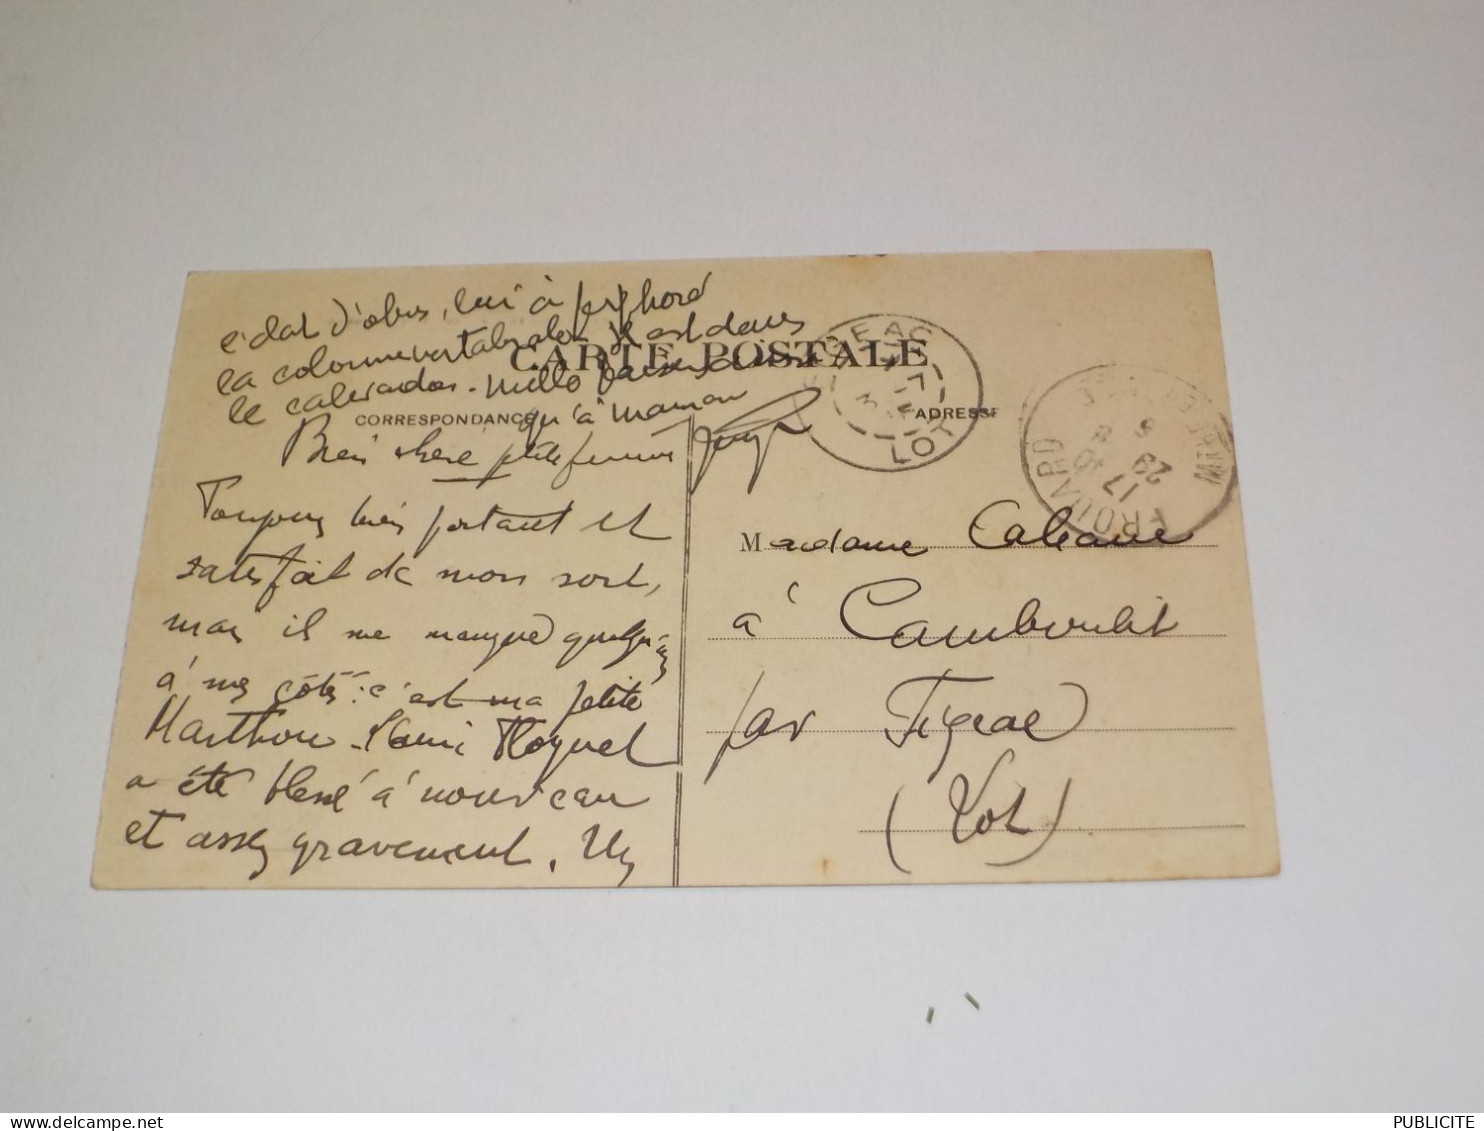 éclat d'obus, lui a perforé
la colonne vertabrale. Il est dans
le calvados. mille baisers ainsi
qu'à maman
CARTE POSTALE
CORRESPONDANCE
ADRESSE
Bien chère petite femme
Toujours bien portant et
satisfait de mon sort,
mais il me manque quelqu'un
à mes côtés: c'est ma petite
Marthou. L'ami Roquel
a été blessé à nouveau
et assez gravement. Un
FIGEAC
LOT
FROUARD
MTHE-ET-MELLE
17 10
29 6
Madame Cabane
à Camboulit
par Figeac
(Lot)
PUBLICITE